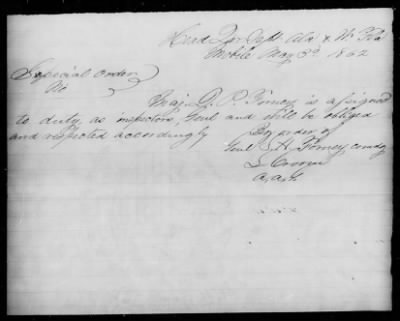 Head Qrs Dept Ala & W. Fla
Mobile May 3d 1862
Special Order
No
Maj. G. P. Forney is assigned
to duty as inspector, Genl and will be obliged
and respected accordingly
By order of
Genl J. H. Forney comdg
A. A. G.